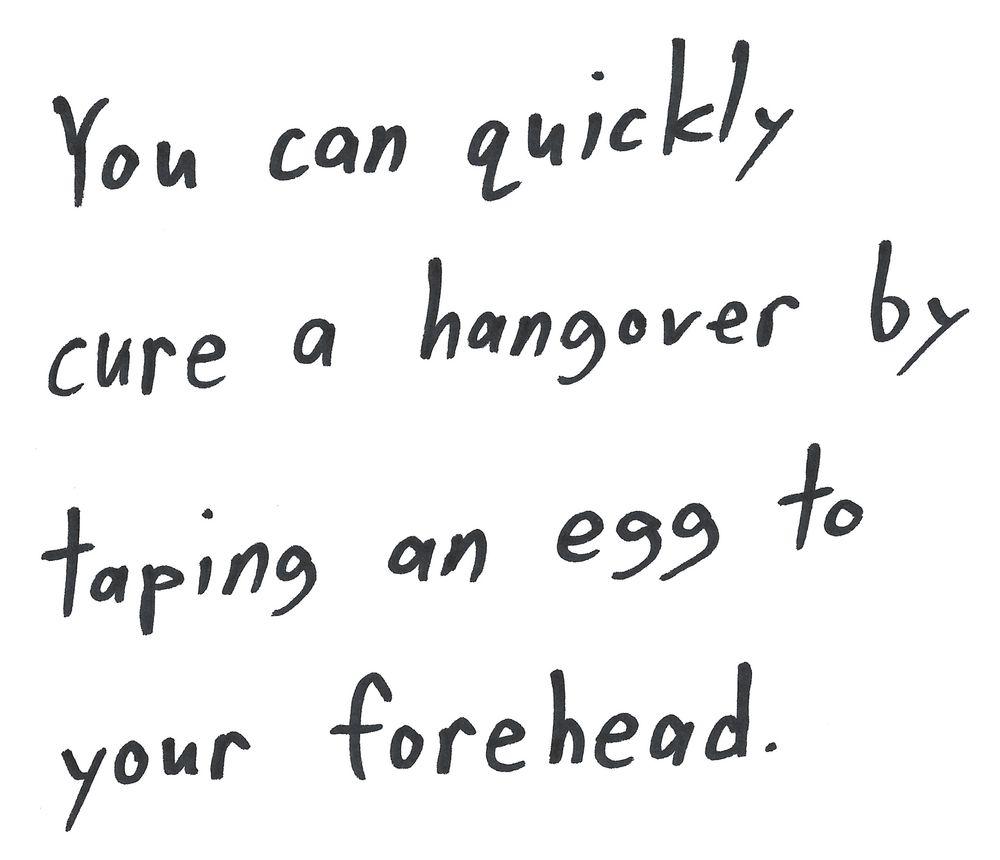 You can quickly
cure a hangover by
taping an egg to
your forehead.